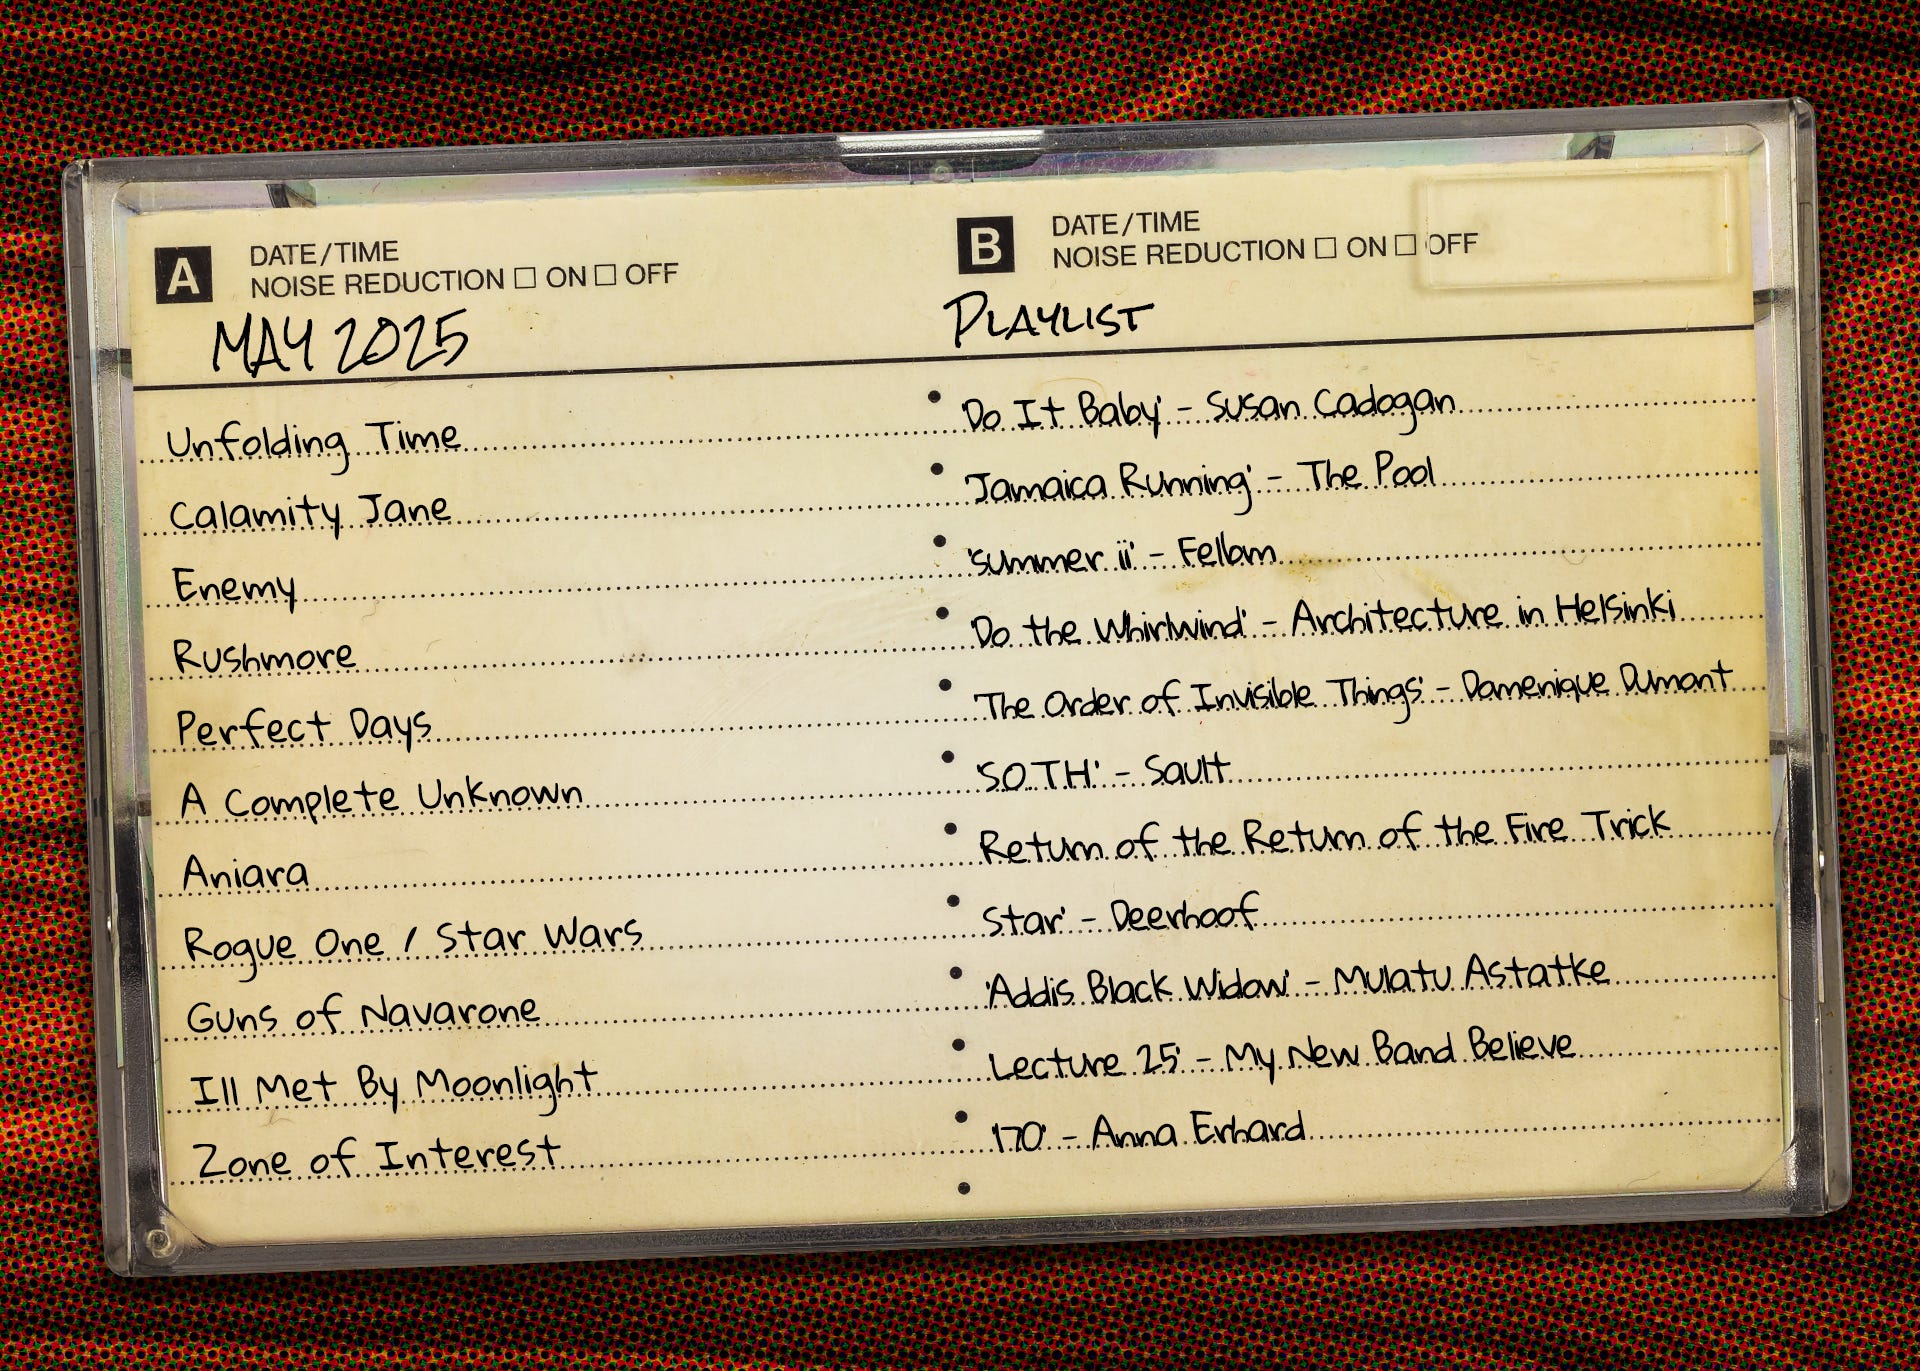 A
DATE/TIME
NOISE REDUCTION ☐ ON ☐ OFF
MAY 2025
Unfolding Time
Calamity Jane
Enemy
Rushmore
Perfect Days
A Complete Unknown
Aniara
Rogue One / Star Wars
Guns of Navarone
Ill Met By Moonlight
Zone of Interest
B
DATE/TIME
NOISE REDUCTION ☐ ON ☐ OFF
PLAYLIST
'Do It Baby' - Susan Cadogan
'Jamaica Running' - The Pool
'summer ii' - Fellom
'Do the Whirlwind' - Architecture in Helsinki
'The Order of Invisible Things' - Domenique Dumont
'S.O.T.H.' - Sault
Return of the Return of the Fire Trick
Star' - Deerhoof
'Addis Black Widow' - Mulatu Astatke
Lecture 25' - My New Band Believe
'170' - Anna Erhard